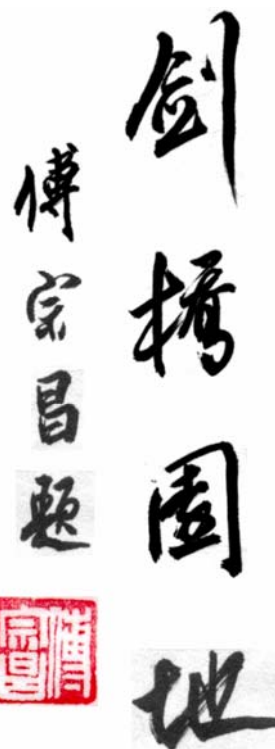 剑橋園地
傅宗昌题
傅宗昌